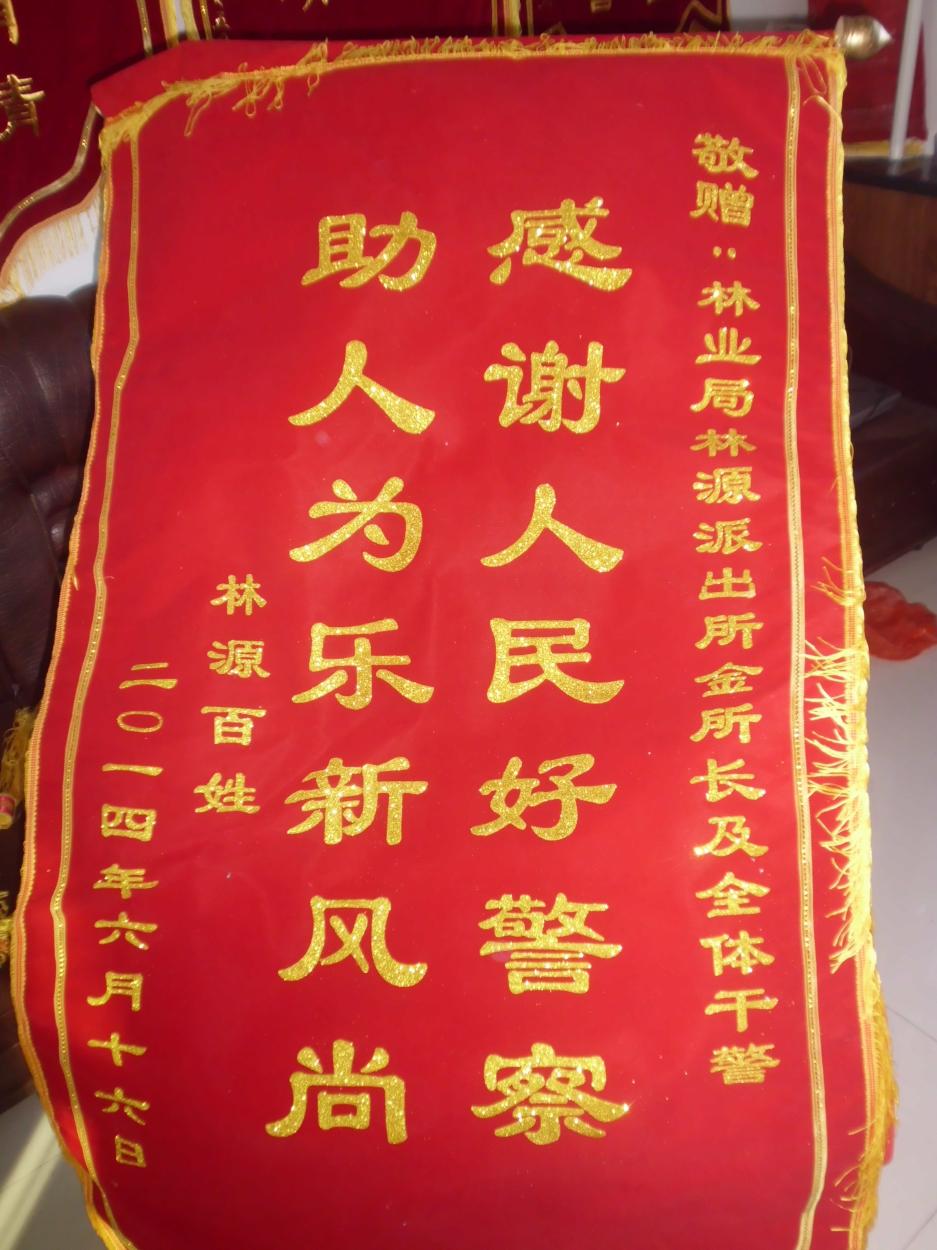 敬赠：林业局林源派出所金所长及全体干警
感谢人民好警察
助人为乐新风尚
林源百姓
二〇一四年六月十六日